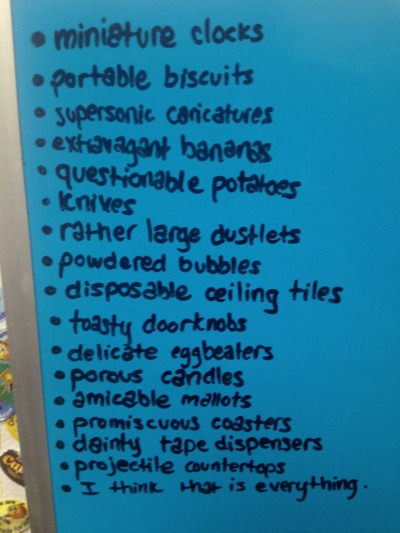 • miniature clocks
• portable biscuits
• supersonic caricatures
• extravagant bananas
• questionable potatoes
• knives
• rather large dustlets
• powdered bubbles
• disposable ceiling tiles
• toasty doorknobs
• delicate eggbeaters
• porous candles
• amicable mallots
• promiscuous coasters
• dainty tape dispensers
• projectile countertops
• I think that is everything.